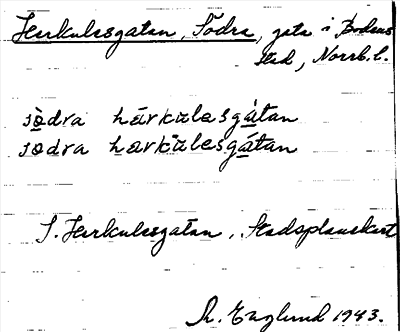 Herkulesgatan, Södra, gata i Bodens
stad, Norrb. l.
sò̱dra härkulesgá̱tan
so̱dra härkulesgá̱tan
S. Herkulesgatan, Stadsplanekart
R. Englund 1943.